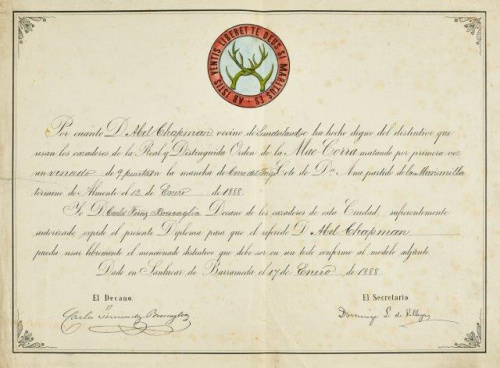 AB ISTIS VENTIS LIBERET TE DEUS SI MARITUS ES
Por cuanto D. Abel Chapman vecino de se ha hecho digno del distintivo que
usan los cazadores de la Real y Distinguida Orden de la Mac-Corra matando por primera vez
un venado de 9 puntas en la mancha de Coto de Dª Ana partido de la Marismilla
término de Almonte el 12 de Enero de 1888.
Yo D. Carlos Decano de los cazadores de esta Ciudad, suficientemente
autorizado expido el presente Diploma para que el referido D. Abel Chapman
pueda usar libremente el mencionado distintivo que debe ser en un todo conforme al modelo adjunto.
Dado en Sanlucar de Barrameda el 17 de Enero de 1888
El Decano. El Secretario
Carlos Fernandez Domingo L. de Villegas